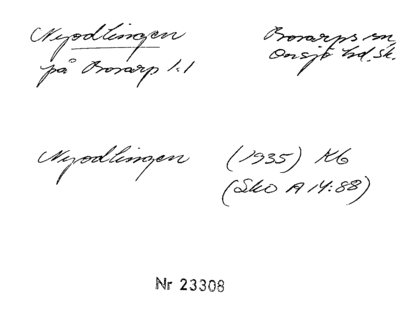 Nyodlingen
på Bosarp 1:1
Bosarps sn,
Onsjö hd, Sk.
Nyodlingen (1935) Kb
(Sko A 14:88)
Nr 23308